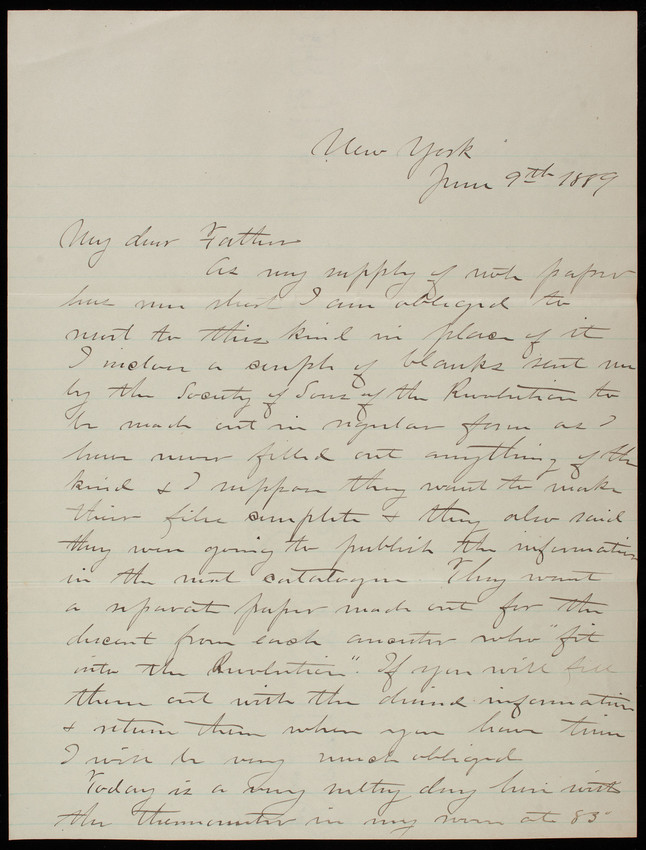 New York
June 9th 1889
My dear Father
As my supply of note paper
has run short I am obliged to
resort to this kind in place of it
I inclose a couple of blanks sent me
by the Society of Sons of the Revolution to
be made out in regular form as I
have never filled out anything of the
kind & I suppose they want to make
their files complete & they also said
they were going to publish the information
in the next catalogue. They want
a separate paper made out for the
descent from each ancestor who "fit
into the Revolution". If you will fill
them out with the desired information
& return them when you have time
I will be very much obliged
Today is a very sultry day here with
the thermometer in my room at 83°